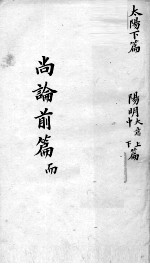 太陽下篇
陽明上中下篇
尚論前篇 而